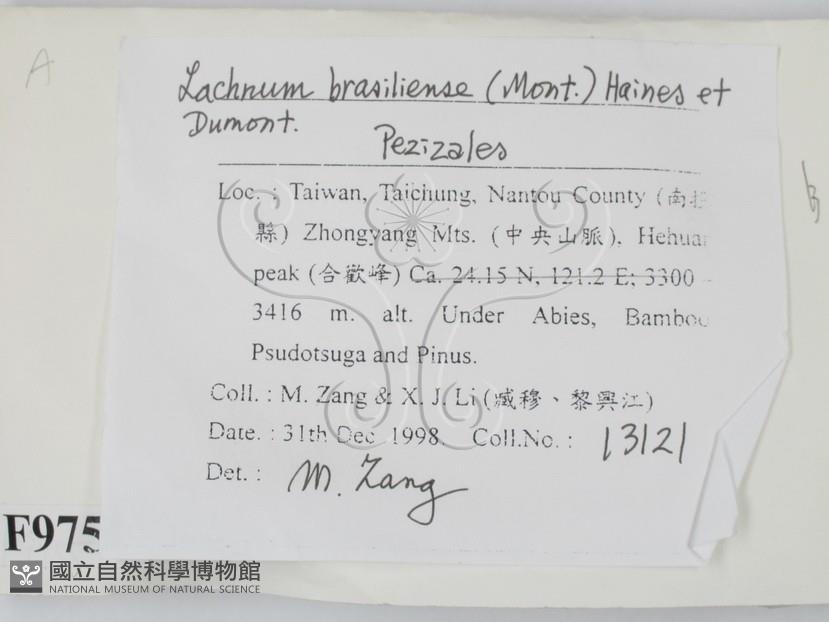 A
Lachnum brasiliense (Mont.) Haines et
Dumont.
Pezizales
Loc. : Taiwan, Taichung, Nantou County (南投
縣) Zhongyang Mts. (中央山脈), Hehuan
peak (合歡峰) Ca. 24.15 N, 121.2 E; 3300 -
3416 m. alt. Under Abies, Bamboo
Psudotsuga and Pinus.
Coll. : M. Zang & X. J. Li (臧穆、黎興江)
Date. : 31th Dec 1998. Coll.No. : 13121
Det. : M. Zang
F975
國立自然科學博物館
NATIONAL MUSEUM OF NATURAL SCIENCE